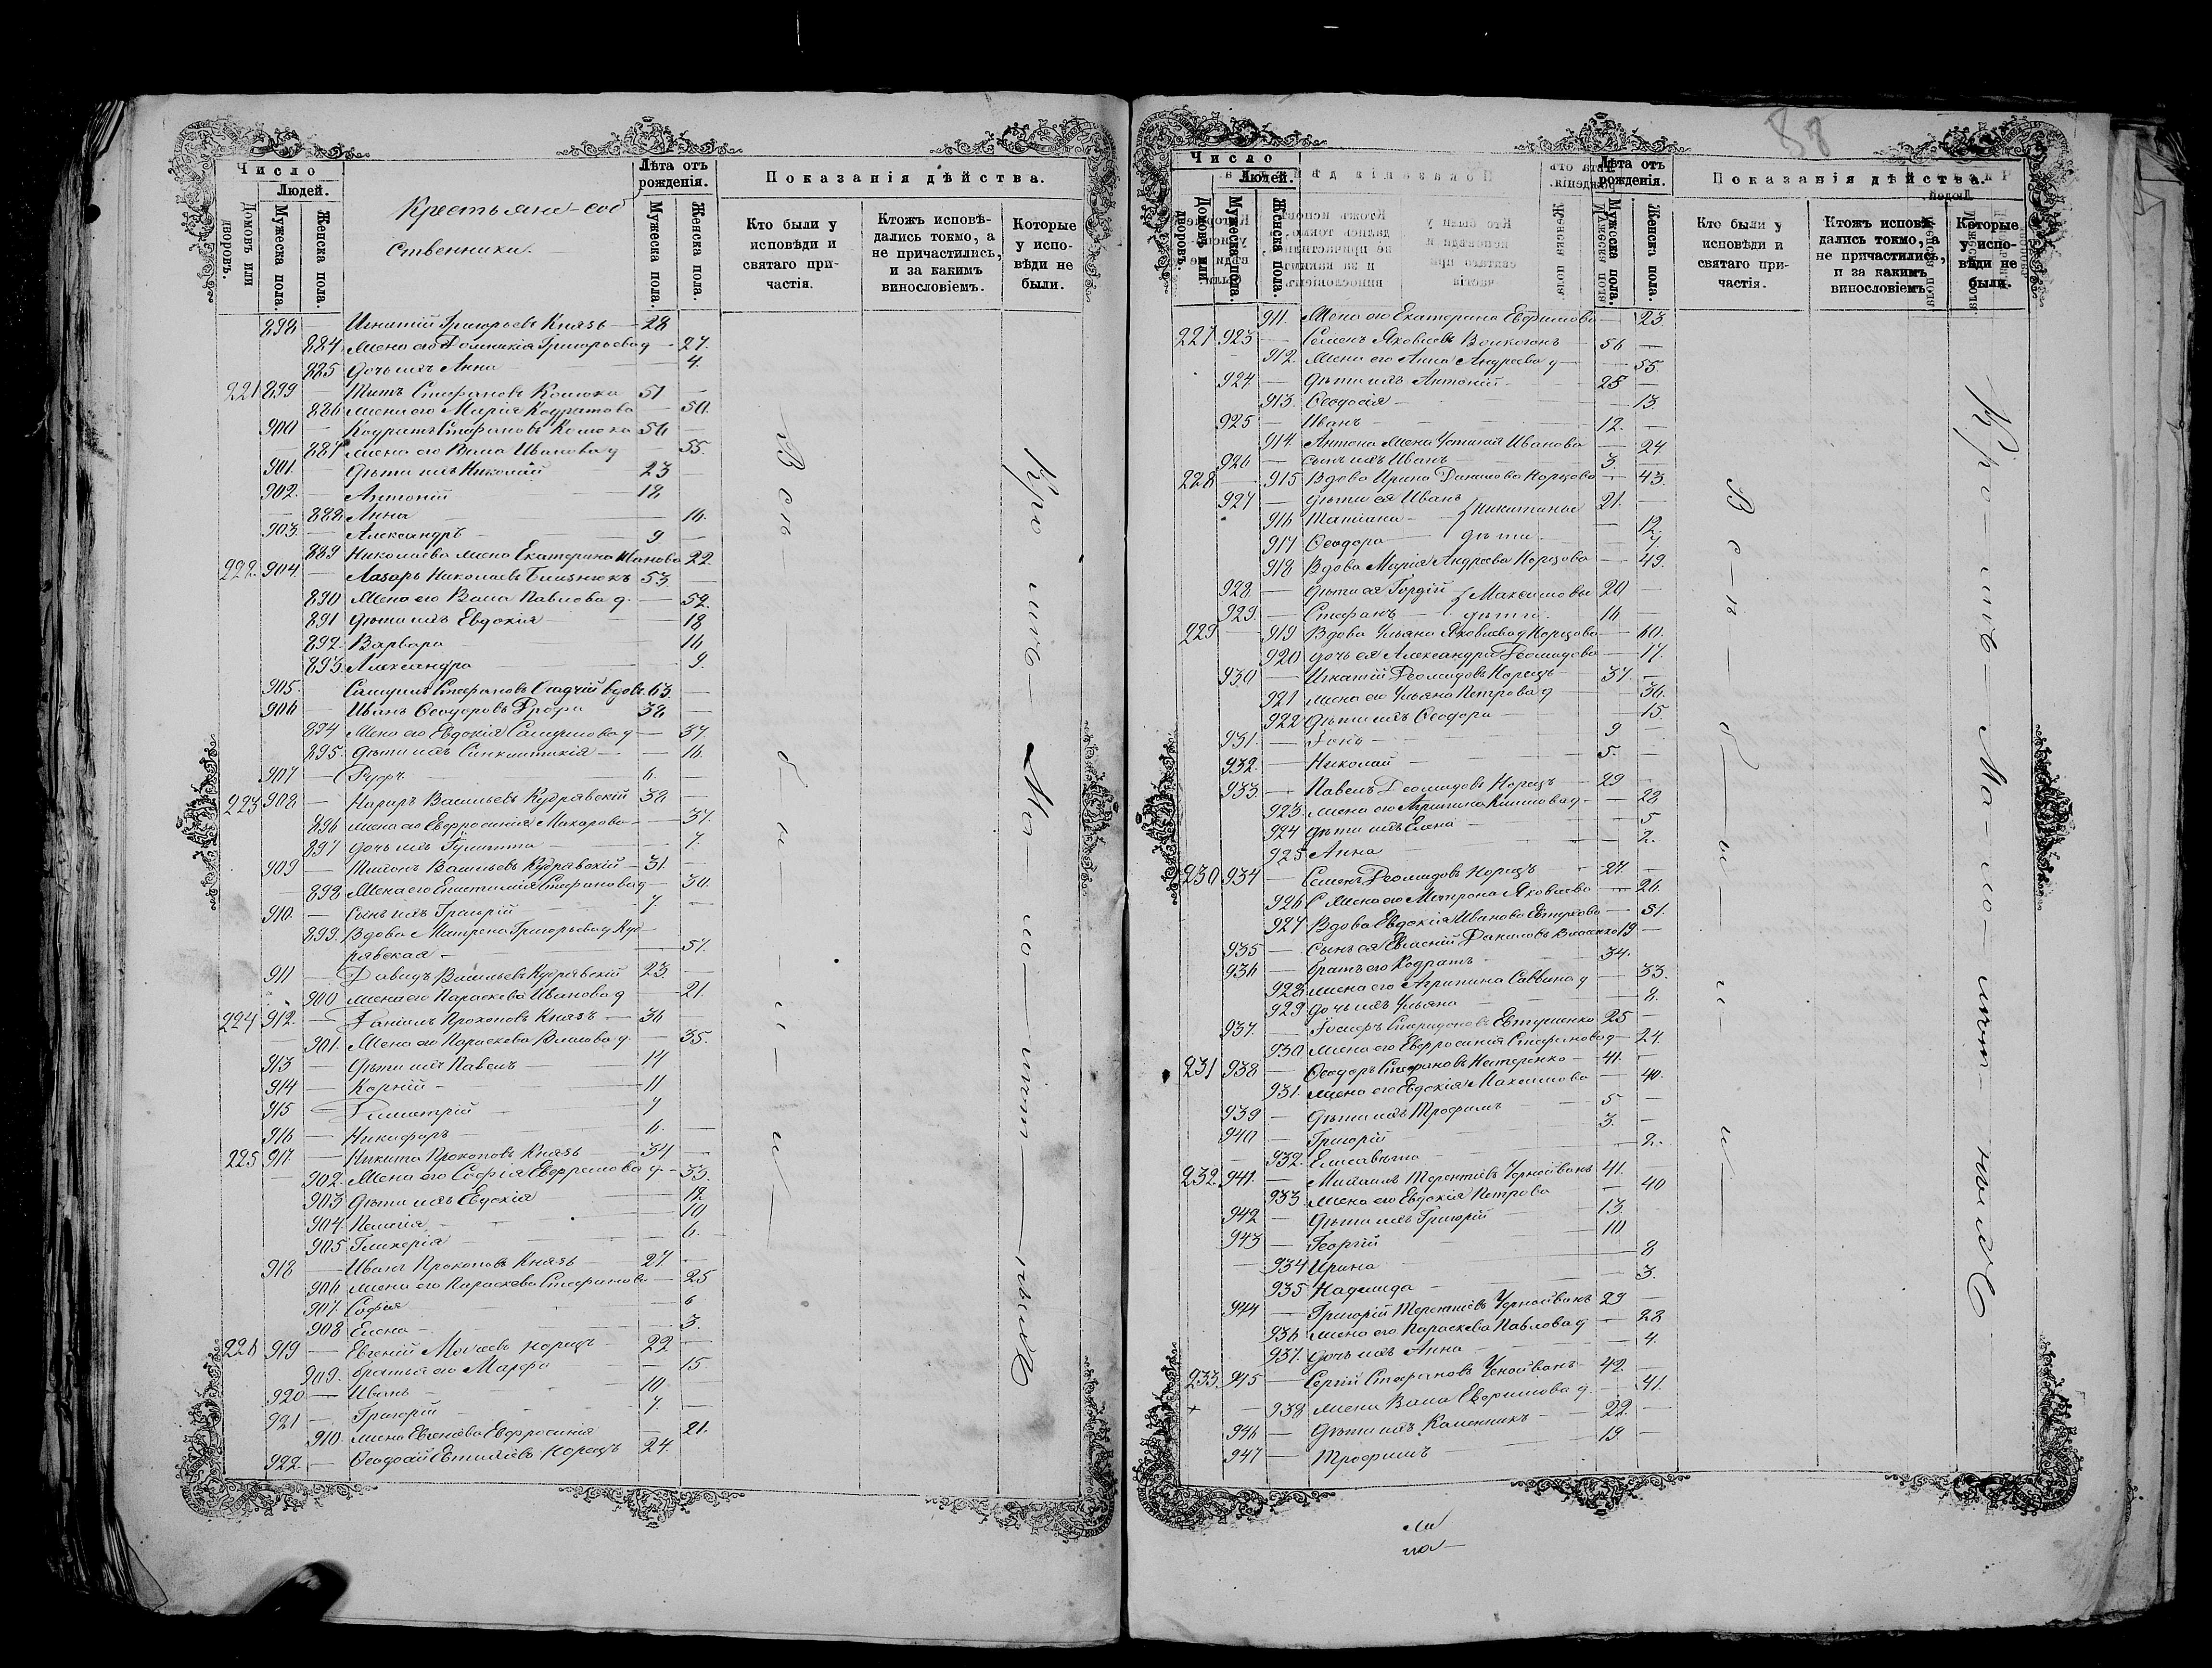 Число
Людей.
Домовъ или дворовъ.
Мужеска пола.
Женска пола.
Крестьяне-соб
ственники.
Лѣта отъ рожденія.
Мужеска пола.
Женска пола.
Показанія дѣйства.
Кто были у исповѣди и святаго причастія.
Ктожъ исповѣдались токмо, а не причастились, и за какимъ винословіемъ.
Которые у исповѣди не были.
898 — Игнатій Григорьевъ Князь — 28
884. Жена его Домникія Григорьева д — 27.
885 Дочь ихъ Анна — 4.
221 899 — Титъ Стефановъ Колюка 51 —
886 Жена его Марія Кодратова — 50.
900 — Кодратъ Стефановъ Колюка 56 —
887 Жена его Васса Иванова д — 55.
901. Дѣти ихъ Николай — 23
902. — Антоній — 18
888 Анна — 16.
903. — Александръ — 9 —
889 Николаева жена Екатерина Иванова 22.
222. 904. — Лазарь Николаевъ Близнюкъ 53. —
890 Жена его Васса Павлова д. — 52.
891 Дѣти ихъ Евдокія — 18
892. Варвара — 16
893. Александра — 9.
905. Самуилъ Стефановъ вдов. 63. —
906 — Иванъ Ѳеодоровъ Дрофа 38 —
894 Жена его Евдокія Самуилова д — 37.
895. Дѣти ихъ Синклитикія — 16.
907 — Руфъ — 6. —
223 908 — Карпъ Васильевъ Кудрявскій 38 —
896 Жена его Евфросинія Макарова — 37.
897 Дочь ихъ Іулитта — 7.
909 — Тихонъ Васильевъ Кудрявскій — 31. —
898 Жена его Епистимія Стефанова д — 30.
910. — Сынъ ихъ Григорій — 7 —
899. Вдова Матрона Григорьева д Куд-
рявская — 57.
911 — Давидъ Васильевъ Кудрявскій 23. —
900 Жена его Параскева Иванова д — 21.
224 912. — Даніилъ Прокоповъ Князь — 36 —
901. Жена его Параскева Власова д. — 35.
913 — Дѣти ихъ Павелъ — 14
914 — Корній — 11
915 — Димитрій — 7
916 — Никифоръ — 6. —
225 917. — Никита Прокоповъ Князь — 34 —
902. Жена его Софія Ефремова д. — 33.
903 Дѣти ихъ Евдокія — 12.
904. Пелагія — 10
905 Гликерія — 6.
918 — Иванъ Прокоповъ Князь — 27 —
906 Жена его Параскева Стефанова — 25
907. Софія — 6
908 Елена — 3.
226 919 — Евгеній Корецъ — 22 —
909. Братья его Марфа — 15.
920 — Иванъ — 10. —
921 — Григорій — 7. —
910. Жена Евгенова Евфросинія — 21.
922. — Ѳеодосій Корецъ 24. —
Вси были
Кромѣ малолѣтныхъ
88
Число
Людей.
Домовъ или дворовъ.
Мужеска пола.
Женска пола.
Лѣта отъ рожденія.
Мужеска пола.
Женска пола.
Показанія дѣйства.
Кто были у исповѣди и святаго причастія.
Ктожъ исповѣдались токмо, а не причастились, и за какимъ винословіемъ
Которые у исповѣди не были.
911. Жена его Екатерина Евфимова — 23.
227 923 — Семенъ Яковлевъ — 56 —
912. Жена его Анна Андреева д — 55.
924. — Дѣти ихъ Антоній — 28 —
913. Ѳеодосія — 13.
925 — Иванъ — 12. —
914. Антона жена Устинія Иванова — 24.
926 — Сынъ ихъ Иванъ — 3. —
228 — 915 Вдова Ирина Данилова Корцова — 43.
927 — Дѣти ея Иванъ } Никитины 21. —
916 Татіана — 12.
917 Ѳеодора — дѣти. — 7.
918 Вдова Марія Андреева Корцова — 49.
928. — Дѣти ея Гордій } Максимовы 20 —
929. — Стефанъ — } дѣти. 16 —
229 — 919 Вдова Ульяна Яковлева д Корцова — 60.
920 Дочь ея Александра Деомидова — 17.
930. — Игнатій Деомидовъ Корецъ — 37. —
921 Жена его Ульяна Петрова д — 36.
922 Дѣти ихъ Ѳеодора — 15.
931. — Іонъ — 9 —
932. — Николай — 5. —
933. — Павелъ Деомидовъ Корецъ — 29 —
923. Жена его Агрипина Климова д. — 28
924 Дѣти ихъ Елена — 5
925 Анна — 2.
230 934 — Семенъ Деомидовъ Корецъ — 27. —
926 Жена его Матрона Яковлева — 26.
927 Вдова Евдокія Иванова — 51.
935 — Сынъ ея Даниловъ 19 —
936 — Братъ его Кодратъ — 34. —
928 Жена его Агрипина Саввина д — 33.
929 Дочь ихъ Ульяна — 8.
937. — Іосифъ Спиридоновъ Евтушенко 25 —
930 Жена его Евфросинія Стефанова д — 24.
231 938 — Ѳеодоръ Стефановъ Нестеренко — 41. —
931. Жена его Евдокія Максимова — 40.
939 — Дѣти ихъ Трофимъ — 5 —
940 — Григорій — 3. —
932. Елисавета — 2.
232. 941. — Михаилъ Терентіевъ Чорноиванъ 41. —
933 Жена его Евдокія Петрова — 40
942 — Дѣти ихъ Григорій — 13.
943 — Георгій — 10
934 Ирина — 8
935 Надежда — 3.
944 — Григорій Терентіевъ Чорноиванъ 29 —
936 Жена его Параскева Павлова д — 28
937. Дочь ихъ Анна — 4.
233. 945 — Сергій Стефановъ — 42. —
938 Жена Васса Евфимова д. — 41.
946 — Дѣти ихъ Каленникъ — 22. —
947 — Трофимъ — 19. —
Вси были
Кромѣ малолѣтныхъ